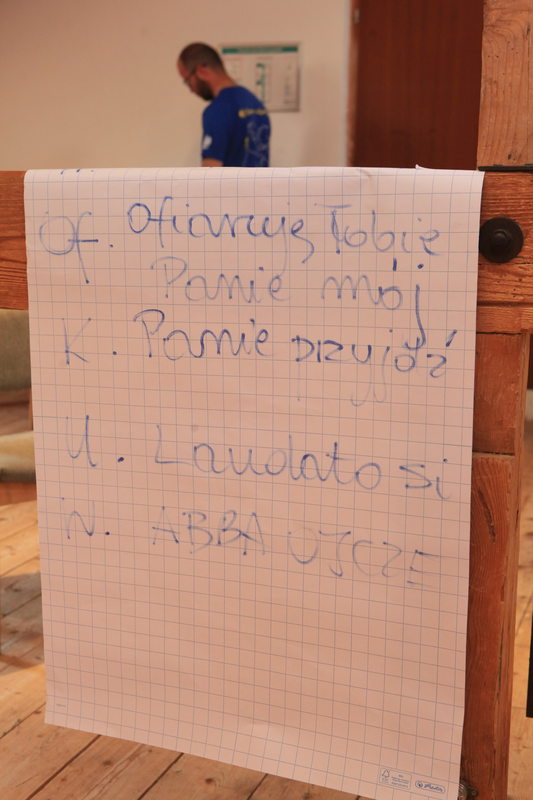 Of. Ofiaruję Tobie
Panie mój
K. Panie przyjdź
U. Laudato si
N. ABBA OJCZE